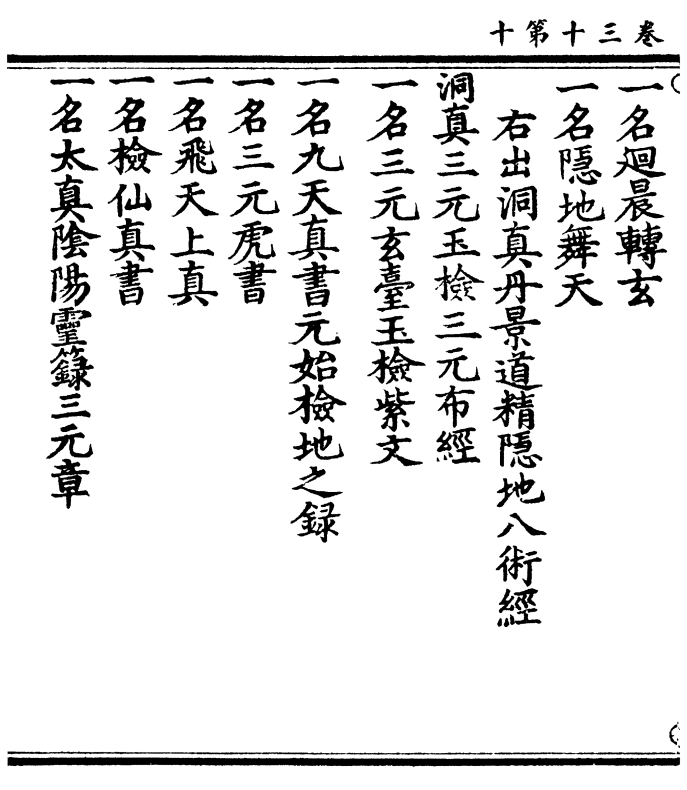 卷三十第十
一名迴晨轉玄
一名隱地舞天
右出洞真丹景道精隱地八術經
洞真三元玉檢三元布經
一名三元玄臺玉檢紫文
一名九天真書元始檢地之録
一名三元虎書
一名飛天上真
一名檢仙真書
一名太真陰陽靈籙三元章